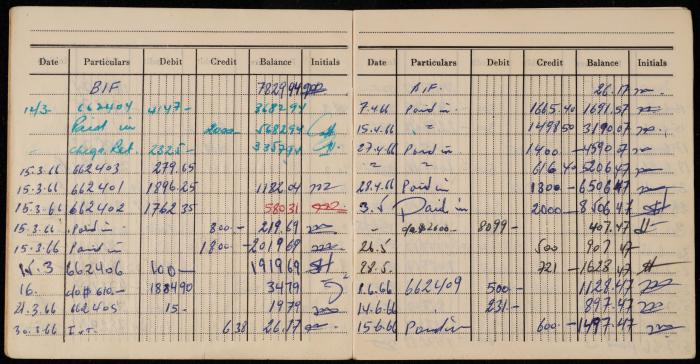 Date Particulars Debit Credit Balance Initials
B/F 7829.94
12/3 662404 4147- 3682.94
Paid in 2000- 5682.94
Chega. Ret. 2325- 3357.94
15.3.66 662403 279.65
15.3.66 662401 1896.25 1182.04
15.3.66 662402 1762.35 580.31
15.3.66 Paid in 800- 219.69
15.3.66 Paid in 1800- 2019.69
15.3 662406 100- 1919.69
16. 1884.90 34.79
21.3.66 662405 15- 19.79
30.3.66 Int. 6.38 26.17
Date Particulars Debit Credit Balance Initials
B/F. 26.17
7.4.66 Paid in 1665.40 1691.57
15.4.66 " 1498.50 3190.07
27.4.66 Paid in 1400- 4590.07
" " 616.40 5206.47
28.4.66 Paid in 1300- 6506.47
3.5 Paid in 2000- 8506.47
8099- 407.47
26.5 500 907.47
28.5. 721- 1628.47
8.6.66 662409 500- 1128.47
14.6.66 231- 897.47
15.6.66 Paid in 600- 1497.47